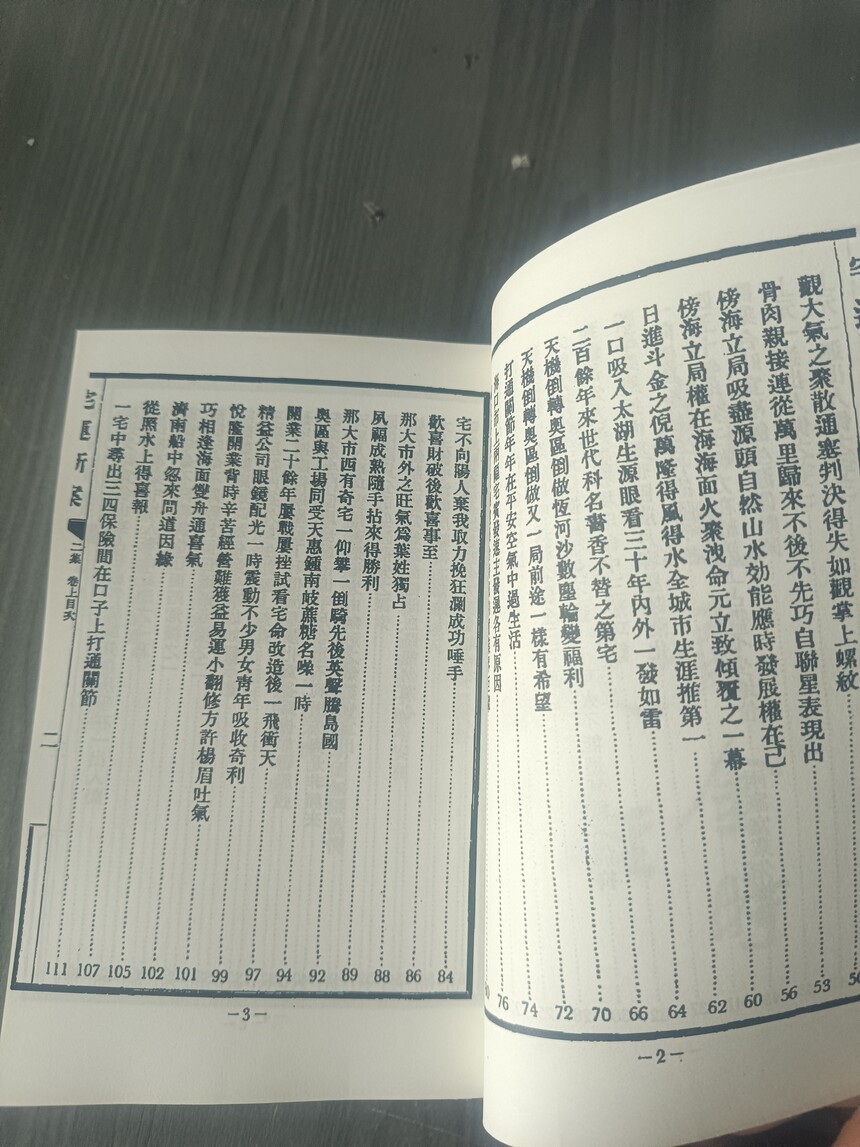 觀大氣之聚散通塞判決得失如觀掌上螺紋 50
骨肉親接連從萬里歸來不後不先巧自聯星表現出 53
傍海立局吸盡源頭自然山水効能應時發展權在己 56
傍海立局權在海海面火聚洩命元立致傾覆之一幕 60
日進斗金之倪萬隆得風得水全城市生涯推第一 62
一口吸入太湖生源眼看三十年內外一發如雷 64
二百餘年來世代科名書香不替之第宅 66
天機倒轉奧區倒做恆河沙數塵輪變福利 70
天機倒轉奧區倒做又一局前途一樣有希望 72
打通關節年年在平安空氣中過生活 74
海口市上兩 發進主發通各有原因 76
－2－
宅不向陽人棄我取力挽狂瀾成功唾手 84
歡喜財破後歡喜事至 86
那大市外之旺氣為葉姓獨占 88
夙福成熟隨手拈來得勝利 89
那大市西有奇宅一仰攀一倒騎先後英聲騰島國 92
奧區與工場同受天惠鍾南岐蔗糖名噪一時 94
開業二十餘年屢戰屢挫試看宅命改造後一飛衝天 97
精益公司眼鏡配光一時震動不少男女青年吸收奇利 99
悅隆開業背時辛苦經營難獲益易運小翻修方許楊眉吐氣 101
巧相逢海面雙舟通喜氣 102
濟南船中忽來問道因緣 105
從照水上得喜報 107
一宅中尋出三四保險間在口子上打通關節 111
宅運新案 二集 卷上目次 二
－3－